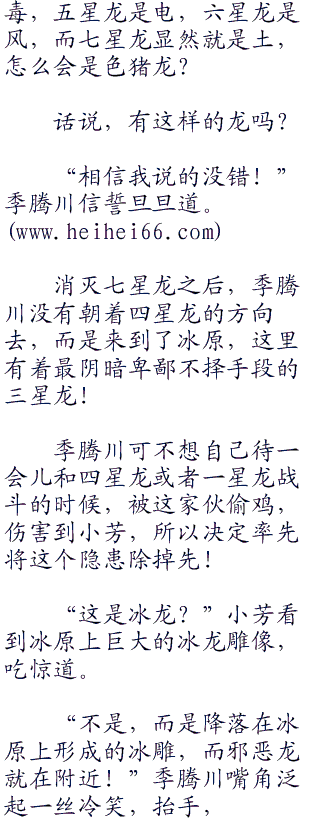 毒，五星龙是电，六星龙是
风，而七星龙显然就是土，
怎么会是色猪龙？
话说，有这样的龙吗？
“相信我说的没错！”
季腾川信誓旦旦道。
(www.heihei66.com)
消灭七星龙之后，季腾
川没有朝着四星龙的方向
去，而是来到了冰原，这里
有着最阴暗卑鄙不择手段的
三星龙！
季腾川可不想自己待一
会儿和四星龙或者一星龙战
斗的时候，被这家伙偷鸡，
伤害到小芳，所以决定率先
将这个隐患除掉先！
“这是冰龙？”小芳看
到冰原上巨大的冰龙雕像，
吃惊道。
“不是，而是降落在冰
原上形成的冰雕，而邪恶龙
就在附近！”季腾川嘴角泛
起一丝冷笑，抬手，